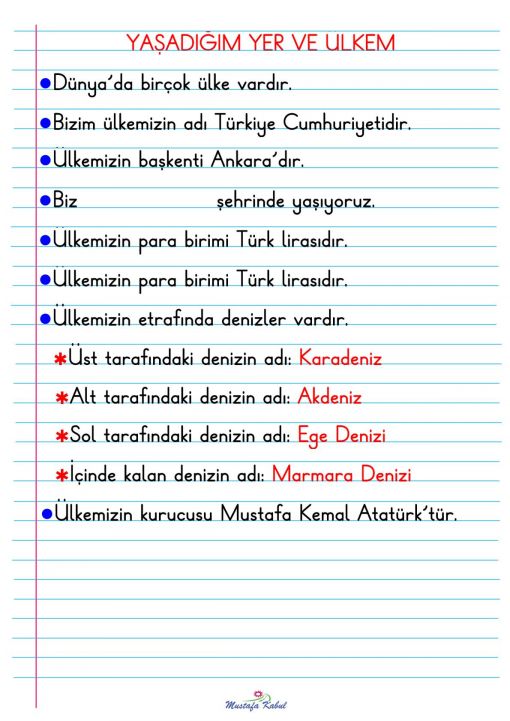 YAŞADIĞIM YER VE ÜLKEM
Dünya'da birçok ülke vardır.
Bizim ülkemizin adı Türkiye Cumhuriyetidir.
Ülkemizin başkenti Ankara'dır.
Biz şehrinde yaşıyoruz.
Ülkemizin para birimi Türk lirasıdır.
Ülkemizin para birimi Türk lirasıdır.
Ülkemizin etrafında denizler vardır.
*Üst tarafındaki denizin adı: Karadeniz
*Alt tarafındaki denizin adı: Akdeniz
*Sol tarafındaki denizin adı: Ege Denizi
*İçinde kalan denizin adı: Marmara Denizi
Ülkemizin kurucusu Mustafa Kemal Atatürk'tür.
Mustafa Kabul